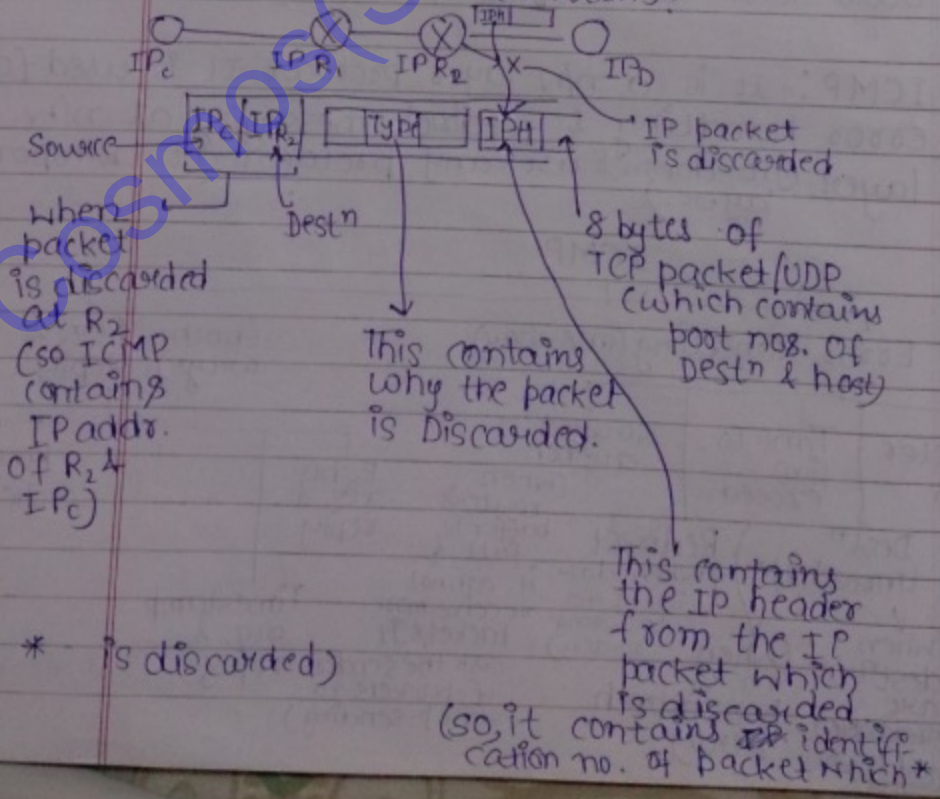 IPH
IPc IP R1 IP R2 x IPD
IPc IPR2 Type IPH
IP packet
is discarded
Source
Destn
where
packet
is discarded
at R2
(so ICMP
contains
IP addr.
of R2 &
IPc)
This contains
why the packet
is Discarded.
8 bytes of
TCP packet/UDP
(which contains
port nos. of
Destn & host)
This contains
the IP header
from the IP
packet which
is discarded
(so, it contains identifi-
cation no. of packet which*
* is discarded)
cosmos